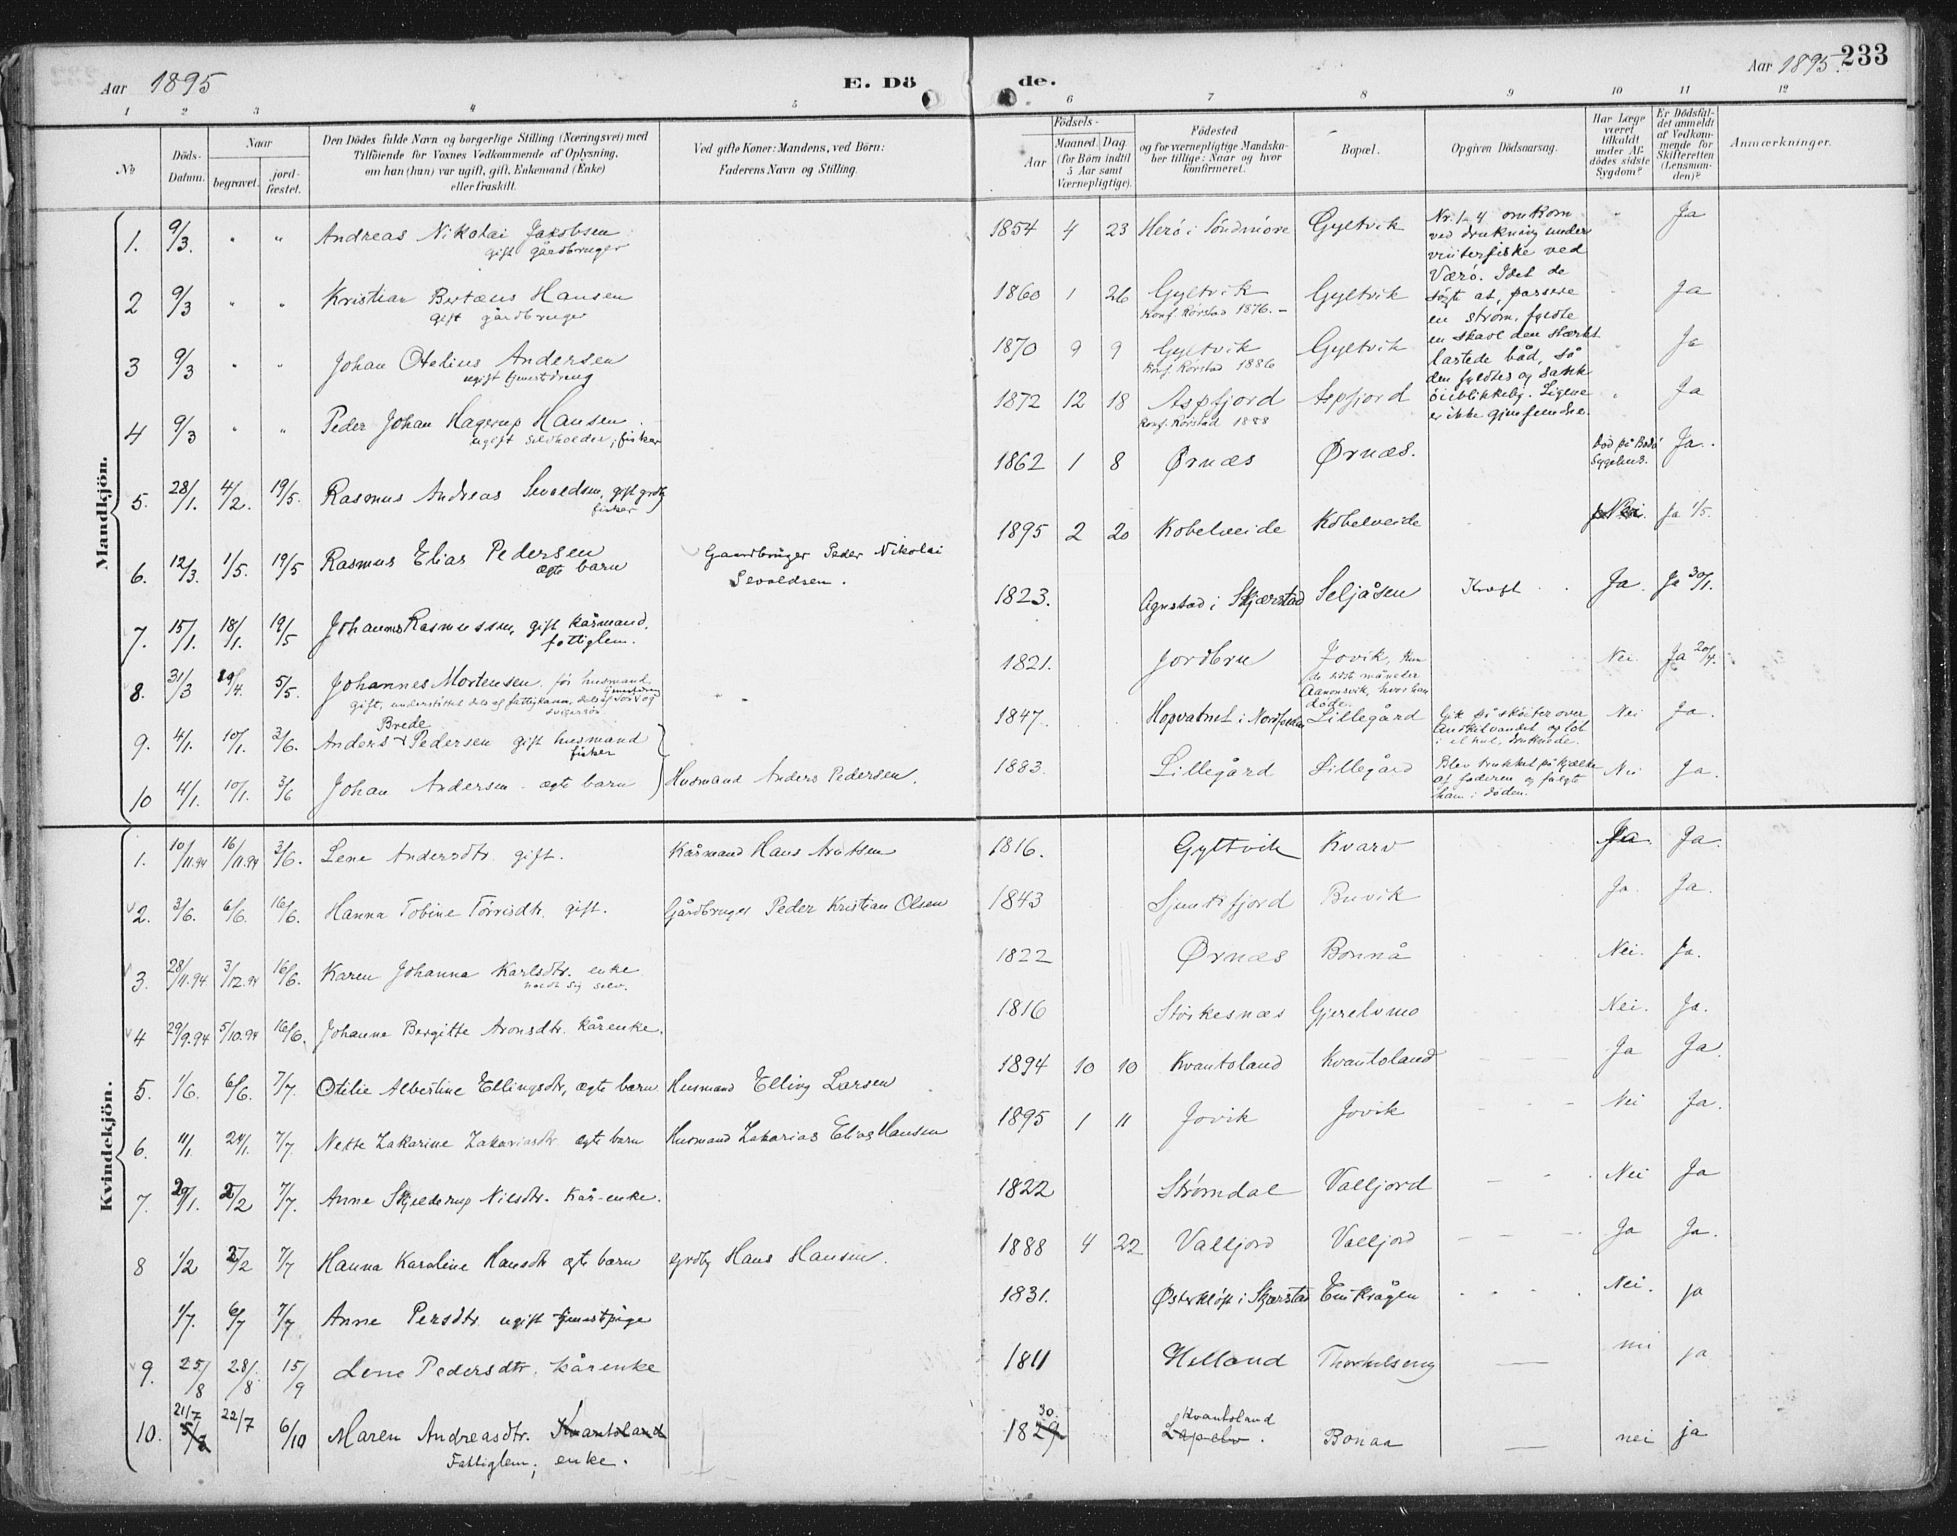 Aar 1895 E. Dö de. Aar 1895. 233
1 2 3 4 5 6 7 8 9 10 11 12
No
Döds-Datum.
Naar
begravet.
jord-fæstet.
Den Dödes fulde Navn og borgerlige Stilling (Næringsvei) med
Tilföiende for Voxnes Vedkommende af Oplysning,
om han (hun) var ugift, gift, Enkemand (Enke)
eller fraskilt.
Ved gifte Koner: Mandens, ved Börn:
Faderens Navn og Stilling.
Födsels-
Aar
Maaned. Dag
(for Børn indtil
5 Aar samt
Værnepligtige).
Födested
og for værnepligtige Mandska-
ber tillige: Naar og hvor
konfirmeret.
Bopæl.
Opgiven Dödsaarsag.
Har Læge
været
tilkaldt
under Af-
dödes sidste
Sygdom?
Er Dödsfal-
det anmeldt
af Vedkom-
mende for
Skifteretten
(Lensman-
den)?
Anmærkninger.
Mandkjön.
1. 9/3. " " Andreas Nikolai Jakobsen
gift gårdbruger
1854 4 23 Herø i Söndmöre Gyltvik " Ja
Nr. 1-4 omkom
ved drukning under
vinterfiske ved
Værö. Idet de
søgte at passere
en strøm, fyldte
en skavl den stærkt
lastede båd, så
den fyldtes og sank
öieblikkelig. Ligene
er ikke gjenfundne.
2 9/3 " " Kristian Bertæus Hansen
gift gårdbruger
1860 1 26 Gyltvik Gyltvik Ja
Konf. Rørstad 1876. –
3 9/3 " " Johan Otelius Andersen
ugift tjenestdreng
1870 9 9 Gyltvik Gyltvik Ja
Konf. Rörstad 1886
4 9/3 " " Peder Johan Hagerup Hansen
ugift selvholder, fisker
1872 12 18 Aspfjord Aspfjord " Ja
Konf. Rörstad 1888
5. 28/1. 4/2. 19/5. Rasmus Andreas Sevaldsen, gift grdb
fisker
1862 1 8 Ørnæs Ørnæs. Död på Bodö
Sygehus. Ja.
6. 12/3. 1/5. 19/5 Rasmus Elias Pedersen
ægte barn
Gaardbruger Peder Nikolai
Sevaldsen.
1895 2 20 Kobelveide Kobelveide Nei. Ja 1/5.
7. 15/1. 18/1. 19/5 Johannes Rasmussen, gift kårmand.
fattiglem.
1823. Agnstad i Skjærstad Seljåsen Kræft Ja. Ja 30/1.
8. 31/3 19/4. 5/5. Johannes Mortensen, før husmand
gift, understöttet dels af fattigkassen, dels af
svigersøn.
1821. Jordbru Jovik, kun
de sidste måneder
Aanonsvik, hvor han
døde.
Nei. Ja 20/4.
9. 4/1. 10/1. 3/6. Anders Brede Pedersen gift husmand
fisker
1847. Hopvatnet i Nordfolden Lillegård Gik på skøiter over
vandet og løb
i et hul, druknede.
Nei Ja.
10 4/1. 10/1. 3/6 Johan Andersen – ægte barn Husmand Anders Pedersen.
1883. Lillegård Lillegård Blev trukket på kjælke
af faderen og fulgte
ham i døden.
Nei Ja.
Kvindekjön.
1. 10/11.94 16/11.94 3/6. Lene Andersdtr. gift. Kårmand Hans Arntsen 1816. Gyltvik Kvarv Ja. Ja.
2. 3/6. 6/6. 16/6. Hanna Tobine Törrisdtr. gift. Gårdbruger Peder Kristian Olsen 1843 Sjunkfjord Buvik Ja. Ja.
3. 28/11.94 3/12.94 16/6. Karen Johanna Karlsdtr. enke
holdt sig selv.
1822 Ørnæs Bonnå Nei. Ja.
4 29/9.94 5/10.94 16/6. Johanne Bergitte Aronsdtr. kårenke. 1816 Storkesnæs Gjerelvmo Nei. Ja.
5. 1/6. 6/6. 7/7. Otilie Albertine Ellingsdtr, ægte barn Husmand Elling Larsen 1894 10 10 Kvantoland Kvantoland Ja Ja.
6. 11/1. 24/1. 7/7. Nette Zakarine Zakariasdtr ægte barn Husmand Zakarias Elias Hansen 1895 1 11 Jovik Jovik Nei Ja.
7. 29/1. 2/2 7/7. Anne Skjelderup Nilsdtr. kår-enke. 1822 Strømdal Valljord Nei Ja
8 1/2 2/2 7/7 Hanna Karoline Hansdtr ægte barn grdbg Hans Hansen. 1888 4 22 Valljord Valljord Ja Ja.
1/7. 6/7 7/7 Anne Persdtr. ugift tjenestpige 1831. Østerkløft i Skjærstad Nei. ja
9. 25/8 28/8 15/9 Lene Pedersdtr. kårenke 1811 Helland Thorkelseng nei ja
10. 21/7 22/7 6/10 Maren Andreasdtr. Kvantoland
Fattiglem, enke.
30.
1829 Kvantoland
Lapelv. Bonaa nei ja